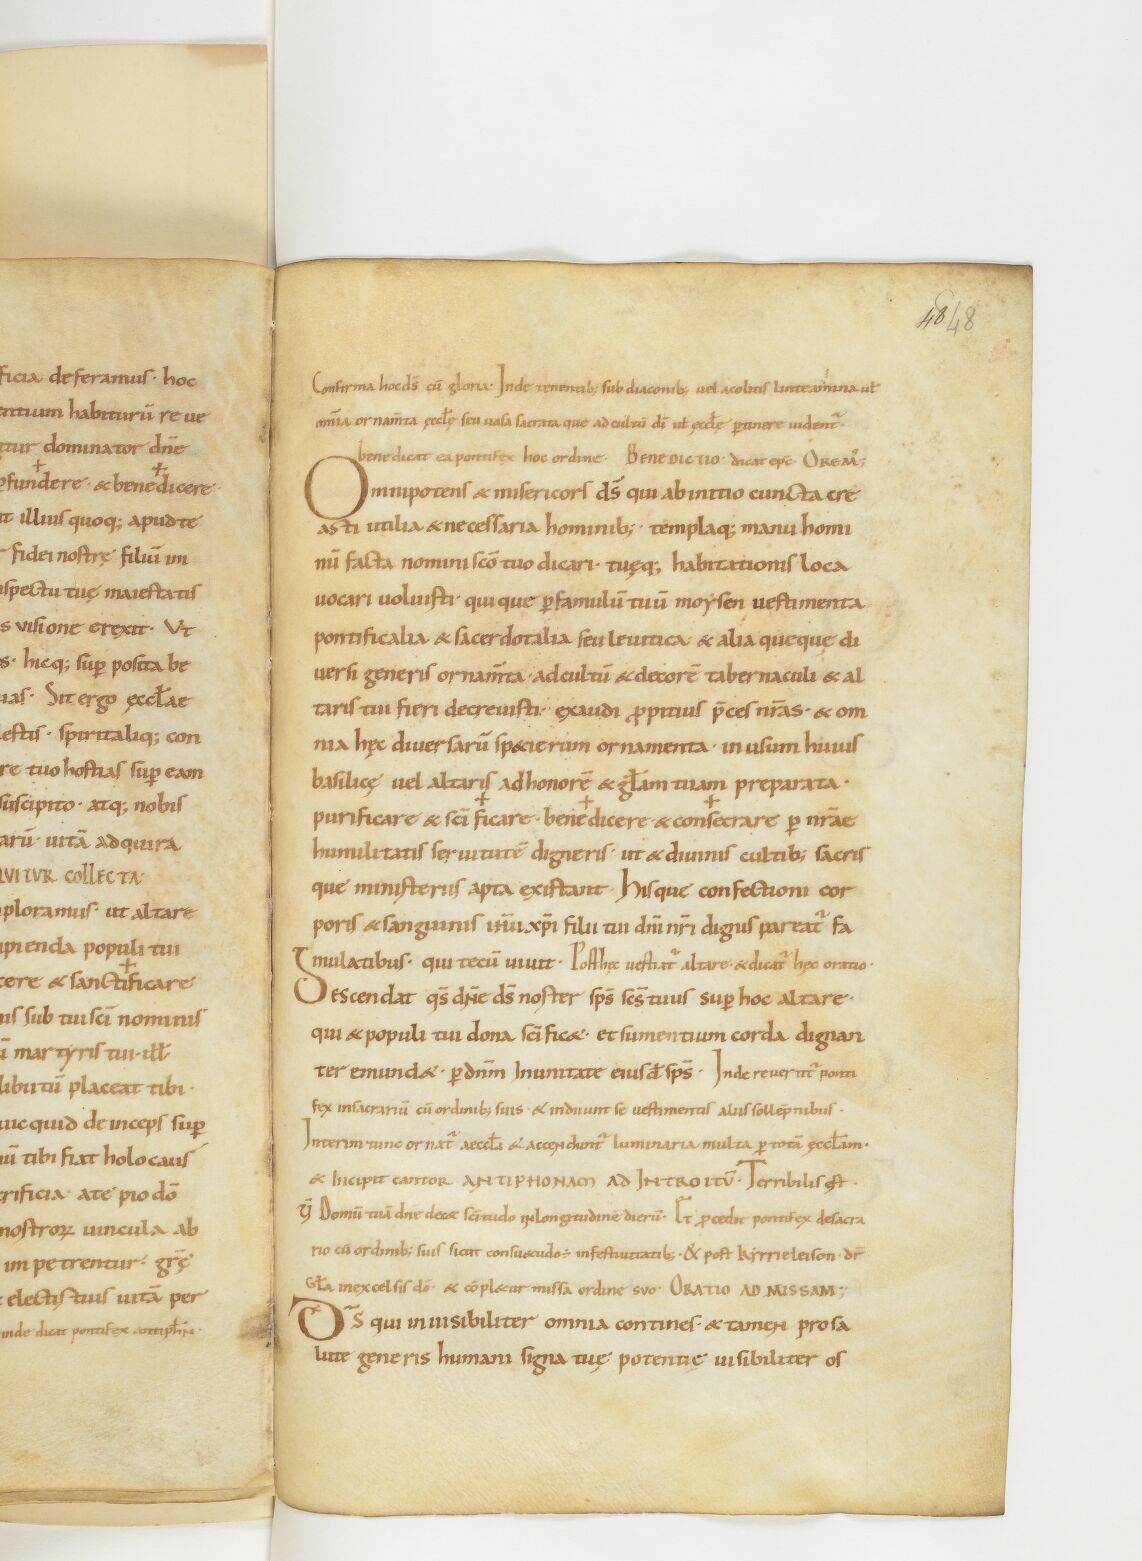 ficia deferamus· hoc
entium habiturū re ue
tur dominator dn̄e
ꝑfundere· & benedicere·
ut illius quoq; apud te
fidei nostrę filiū im
spectu tuę maiestatis
s uisione erexit· Ut
s· hicq; suꝑ posita be
uas· Sit ergo ęccl̄ae
lestis· spiritaliq; con
re tuo hostias suꝑ eam
suscipito· atq; nobis
arū· uitā adquira
QUITUR COLLECTA·
ploramus· ut altare
ipienda populi tui
cere & sanctificare
us sub tui sc̄i nominis
i martyris tui· ill̄
libitū placeat tibi·
uicquid deinceps suꝑ
ū tibi fiat holocaus
crificia a te pio dō
nostroꝝ uincula ab
impetrentur· gr̄ę
electis tuis uitā per
inde dicat pontifex antiph̄n·
48 48
Confirma hoc ds̄ cū gloria· Inde tenentib; subdiaconib; uel acolitis linteamina ul̄
om̄ia ornam̄ta ęccl̄ę seu uasa sacrata que ad cultū dī ul̄ ęccl̄ę ꝑtinere uident᷑·
benedicat ea pontifex hoc ordine· BENEDICTIO· dicat epc̄· OREM᷑;
Omnipotens & misericors ds̄ qui ab initio cuncta cre
asti utilia & necessaria hominib;· templaq; manu homi
nū facta nomini scō tuo dicari· tuęq; habitationis loca
uocari uoluisti· quique ꝑ famulū tuū moẏsen uestimenta
pontificalia & sacerdotalia seu leuitica & alia queque di
uersi generis ornam̄ta· ad cultū & decorē tabernaculi & al
taris tui fieri decreuisti· exaudi ꝓpitius p̄ces nr̄as· & om
nia hęc diuersarū specierum ornamenta· in usum huius
basilicę uel altaris ad honorē & gl̄am tuam preparata·
purificare & sc̄ificare· benedicere & consecrare ꝑ nr̄ae
humilitatis seruitutē digneris· ut & diuinis cultib; sacris
que ministeriis apta existant· hisque confectioni cor
poris & sanguinis ih̄u xp̄i filii tui dn̄i nr̄i dignis pareat᷑ fa
mulatibus· qui tecū uiuit· Posthęc uestiat᷑ altare & dicat᷑ hęc oratio·
DEScendat qs̄ dn̄e ds̄ noster sps̄ scs̄ tuus suꝑ hoc altare·
qui & populi tui dona sc̄ific&· et sumentium corda dignan
ter emund&· ꝑ dn̄m In unitate eiusd̄ sps̄· Inde reuertit᷑ ponti
fex in sacrariū cū ordinib; suis· & induunt se uestimentis aliis sollēpnibus·
Interim tunc ornat᷑ aeccl̄a & accendunt᷑ luminaria multa ꝑ totā ęccl̄am·
& Incipit cantor ANTIPHONAM AD INTROITŪ· Terribilis est·
V̄ Domū tuā dn̄e dec& sc̄itudo in longitudinē dierū· Et ꝓcedit pontifex de sacra
rio cū ordinib; suis sicut consuetudo ÷ in festiuitatib;· & post kẏrrieleison· dr̄
Gl̄a in excelsis dō· & cōpleatur missa ordine suo· ORATIO AD MISSAM;
DS̄ qui inuisibiliter omnia contines· & tamen pro sa
lute generis humani signa tuę potentię uisibiliter os